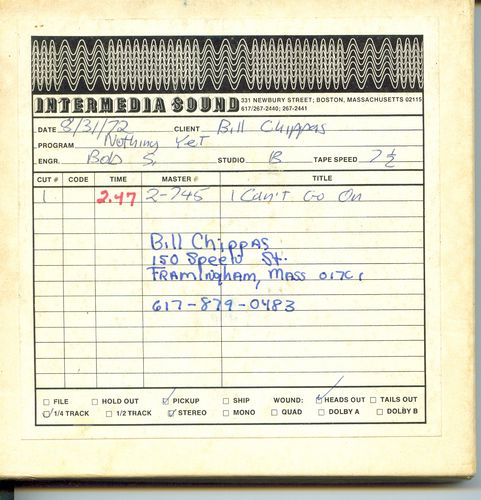 INTERMEDIA SOUND 331 NEWBURY STREET; BOSTON, MASSACHUSETTS 02115
617/267-2440; 267-2441
DATE 8/31/72 CLIENT Bill Chippas
PROGRAM Nothing Yet
ENGR. Bob S. STUDIO B TAPE SPEED 7 1/2
CUT # CODE TIME MASTER # TITLE
1 2.47 2-745 I Can't Go On
Bill Chippas
150 Speen St.
Framingham, Mass 01701
617-879-0483
FILE HOLD OUT PICKUP SHIP WOUND: HEADS OUT TAILS OUT
1/4 TRACK 1/2 TRACK STEREO MONO QUAD DOLBY A DOLBY B